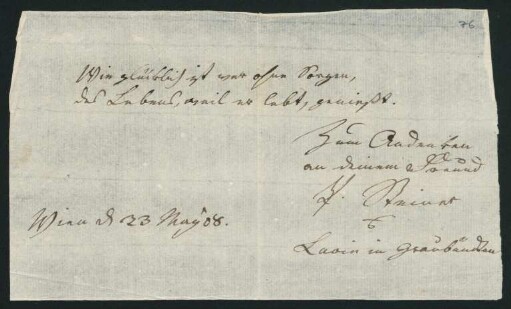 76
Wie glücklich ist wer ohne Sorgen,
des Lebens, weil er lebt, genießt.
Zum Andenken
an deinem Freund
P. Steiner
Wien d 23 May 08.
Lavin in Graubündten